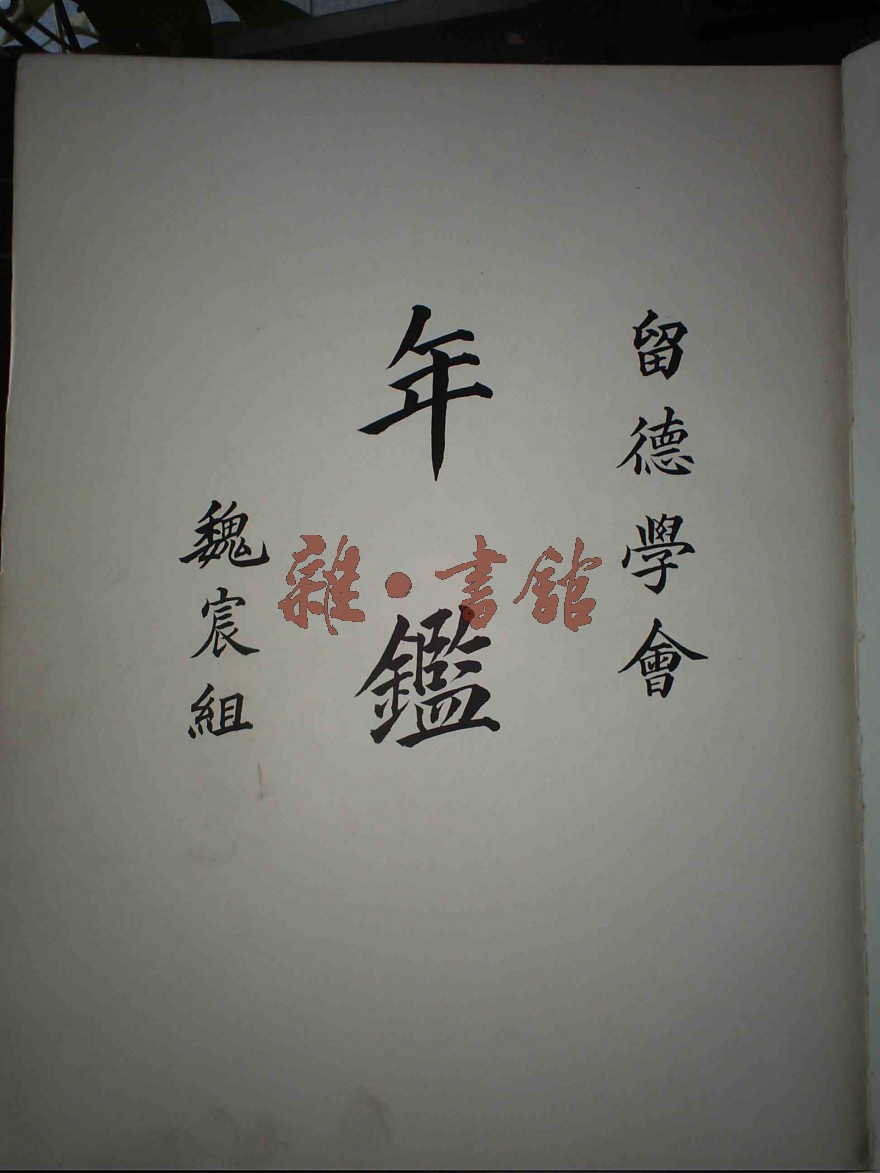 留德學會
年鑑
魏宸組
雜·書館